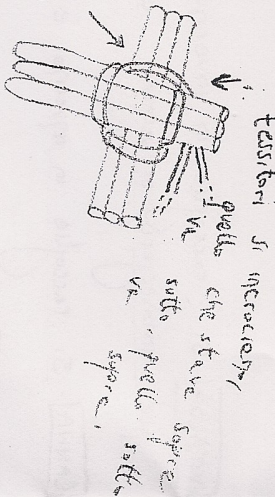 tessitori si incrociano,
quello che stava sopra
va sotto, quello sotto
va sopra.